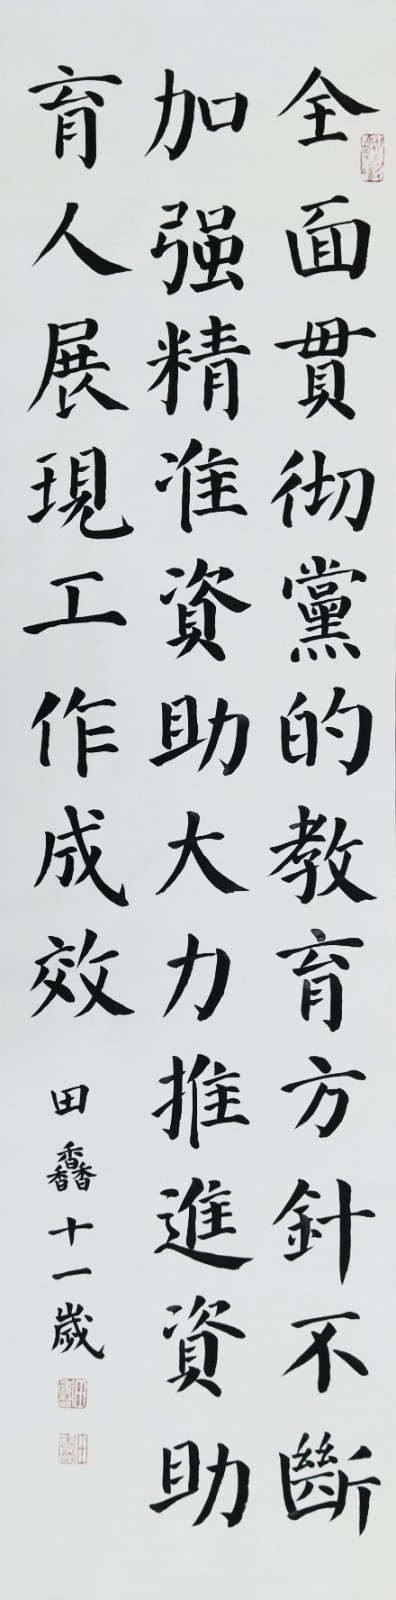 全面贯彻黨的教育方針不斷
加强精准資助大力推進資助
育人展現工作成效
田馫十一歲